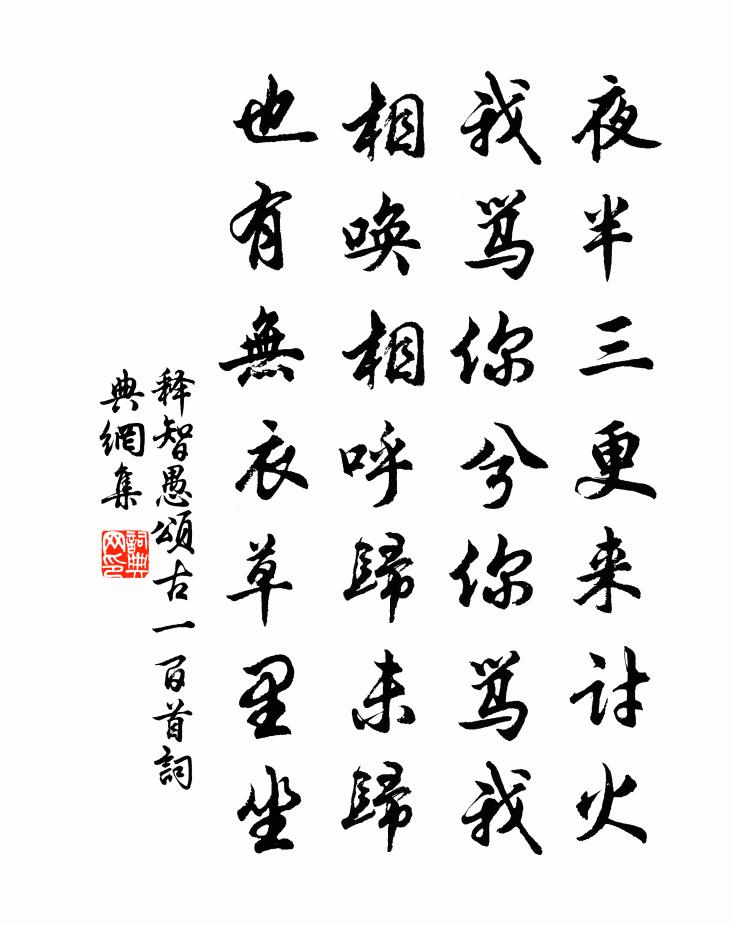 夜半三更来討火
我骂你兮你骂我
相唤相呼歸未歸
也有無衣草里坐
释智愚頌古一百首詞
典網集
詞典
网印